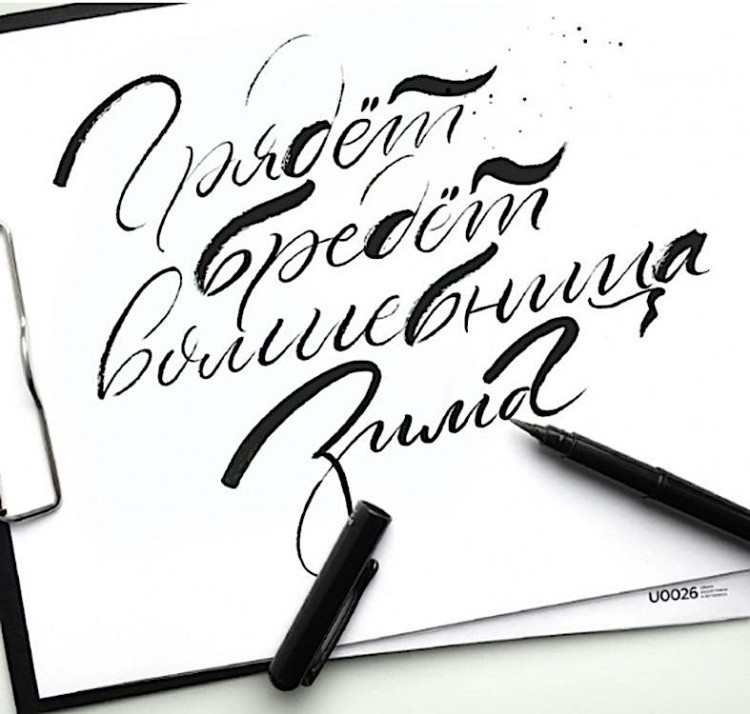 Грядёт
бредёт
волшебница
Зима
U0026